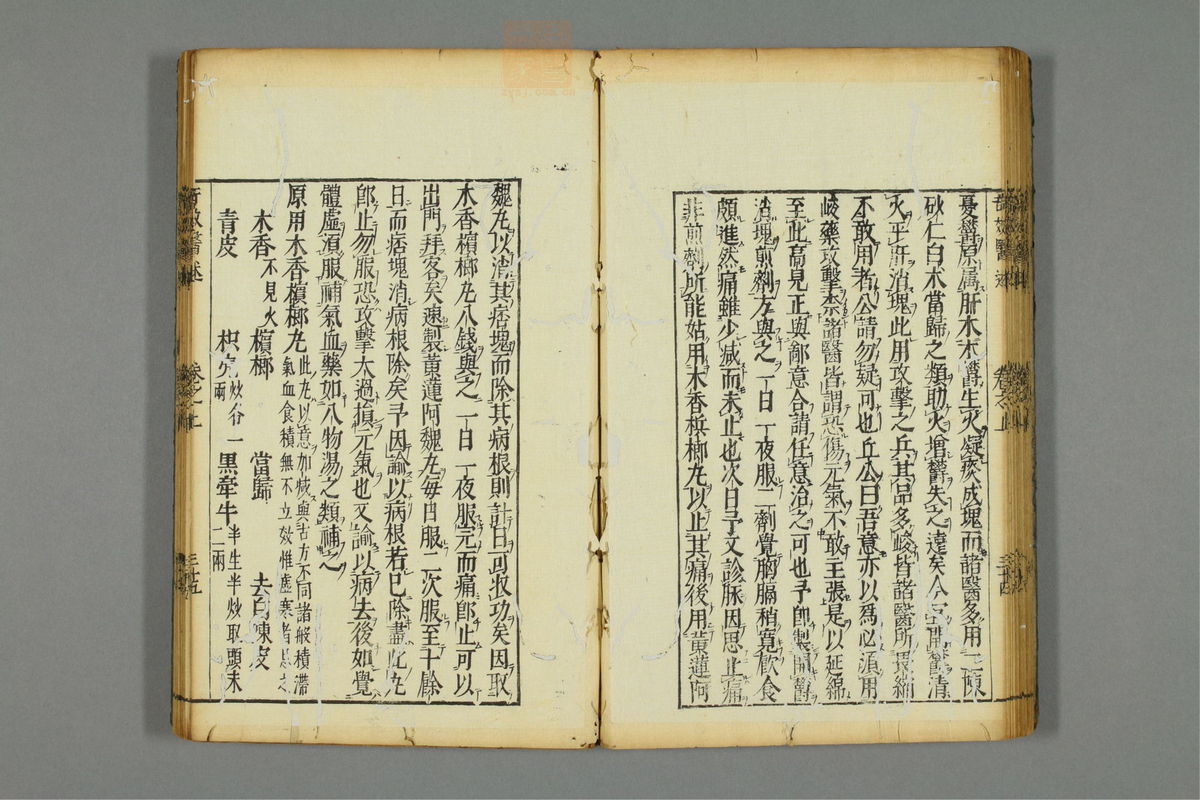 憂鬱原属肝木木鬱生火凝痰成塊而諸醫多用二陳
砍仁白木當歸之類助火增鬱失之遠矣今宜開鬱清
火平肝消塊此用攻擊之兵其品多峻皆諸醫所畏縮
不敢用者公請勿疑可也丘公曰吾意亦以爲必須用
峻藥攻擊柰諸醫皆謂恐傷元氣不敢主張是以延綿
至此高見正與鄙意合請任意治之可也予卽製開鬱
消塊煎劑方與之一日一夜服二劑覺胸膈稍寬飲食
頗進然痛雖少減而未止也次日予又診脉因思止痛
非煎劑所能姑用木香梹榔丸以止其痛後用黃蓮阿
奇效醫述
卷之上
三十四
魏丸以消其痞塊而除其病根則計日可收功矣因取
木香檳榔丸八錢與之一日一夜服完而痛卽止可以
出門拜客矣速製黃蓮阿魏丸每日服一次服至十餘
日而痞塊消病根除矣予因諭以病根若巳除盡此丸
卽止勿服恐攻擊太過損元氣也又諭以病去後如覺
體虛須服補氣血藥如八物湯之類補之
原用木香檳榔丸此丸以意加減與古方不同諸般積滯
氣血食積無不立效惟虛寒者忌之
木香不見火 檳榔 當歸 去白陳皮
青皮 枳壳炒各一兩 黑牽牛半生半炒取頭末二兩
奇效醫述
卷之上
三十五
zysj.com.cn